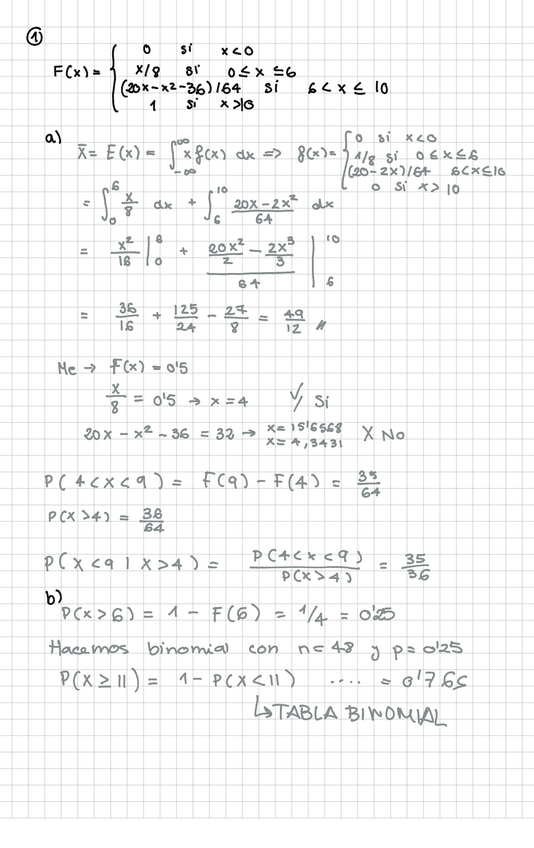 ①
F(x) = { 0 si x<0
x/8 si 0 ≤ x ≤ 6
(20x-x2-36)/64 si 6 < x ≤ 10
1 si x>10
a) X̄ = E(x) = ∫_{-∞}^{∞} x f(x) dx => f(x) = { 0 si x<0
1/8 si 0≤x≤6
(20-2x)/64 6<x≤10
0 si x>10
= ∫_0^6 x/8 dx + ∫_6^10 (20x-2x²)/64 dx
= x²/16 |_0^6 + (20x²/2 - 2x³/3)/64 |_6^10
= 36/16 + 125/24 - 27/8 = 49/12 //
Me → F(x) = 0'5
x/8 = 0'5 → x = 4 ✓ Si
20x - x² - 36 = 32 → x = 15'6568 x = 4,3431 X No
P( 4<x<9 ) = F(9) - F(4) = 35/64
P(x>4) = 36/64
P( x<9 | x>4 ) = P(4<x<9) / P(x>4) = 35/36
b)
P(x>6) = 1 - F(6) = 1/4 = 0'25
Hacemos binomial con n=48 y p=0'25
P(x ≥ 11) = 1 - P(x<11) .... = 0'765
↳ TABLA BINOMIAL